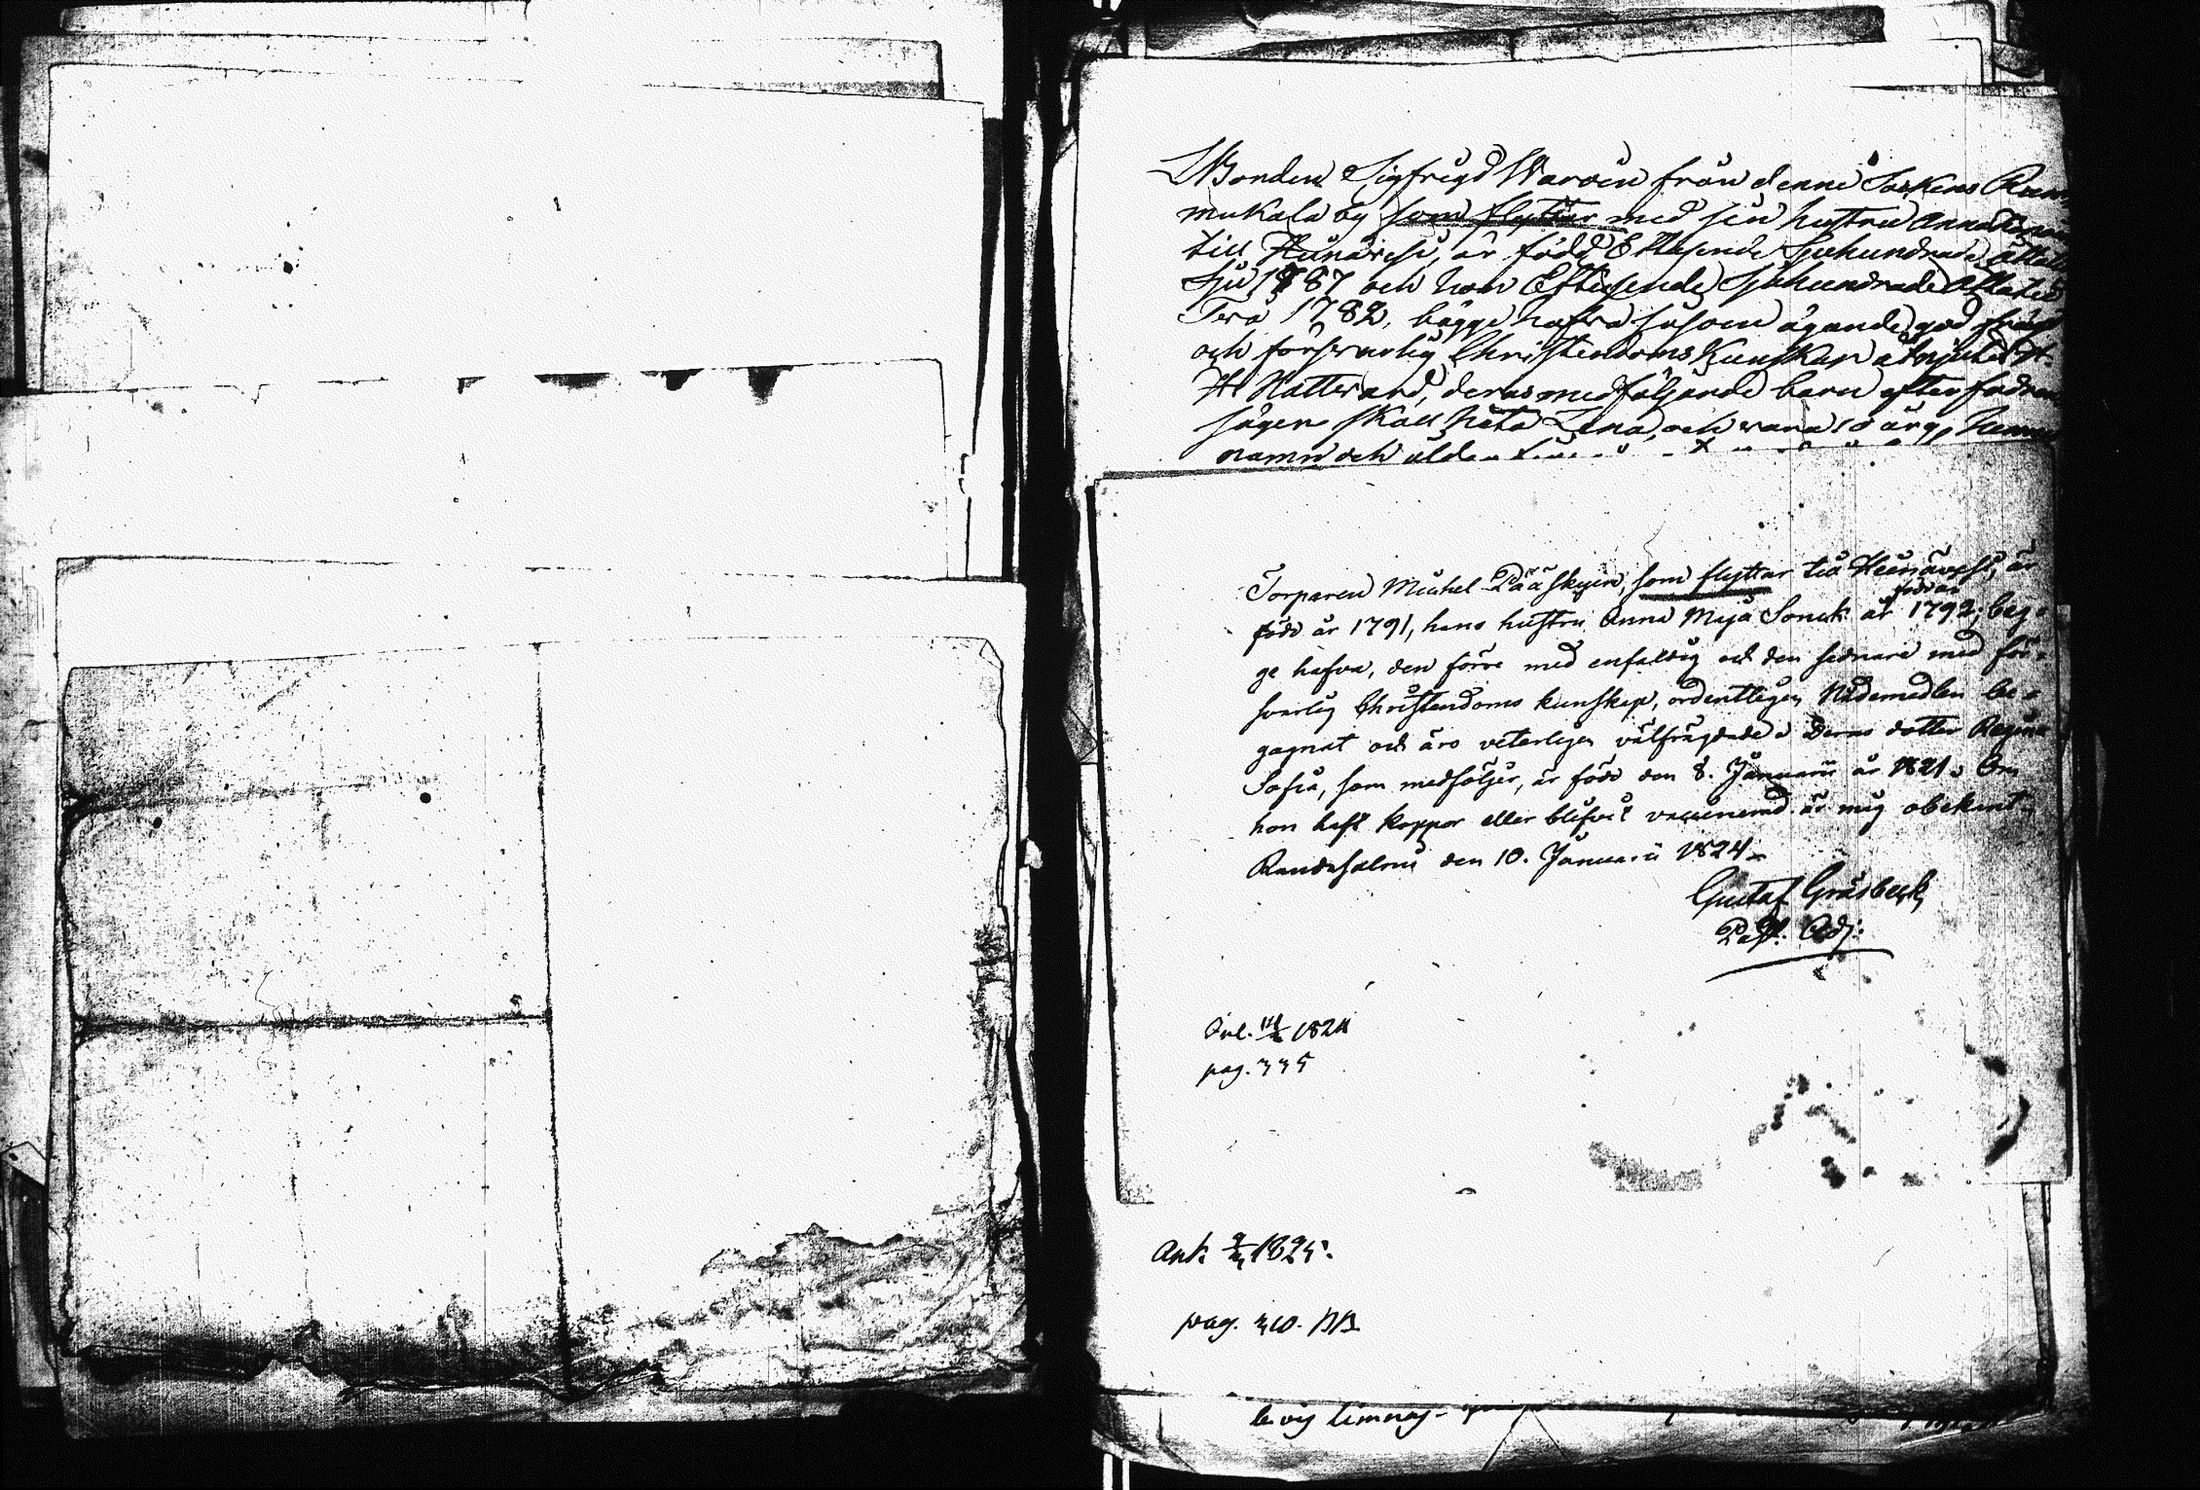 Bonden Sigfrid Waroin från denne Sockens Ram-
mukala by som flyttar med sin hustru Anna
till Heinävesi, är född Ettusende Sjuhundrade åttatio
Sju 1787 och hon Ettusende Sjuhundrade Åttatio
Två 1782, bägge hafva såsom ägande god frägd
och försvarlig Christendoms Kunskap åtnjutit
H Nattvard, deras medföljande barn efter fadrens
sägen skall heta Lena, och vara 10 år,
namn och ålder
Torparen Michel Pääskyin, som flyttar till Heinävesi, är
född år 1791, hans hustru Anna Maja Sonck är född år 1792; beg-
ge hafva, den förre med enfaldig och den sednare med för-
svarlig Christendoms kunskap, ordentligen Nådemedlen be-
gagnat och äro veterligen välfrägdade. Deras dotter Regina
Sofia, som medföljer, är född den 8. Januarii år 1821. Om
hon haft koppor eller blifvit vaccinerad är mig obekant.
Randasalmi den 10. Januarii 1824.
Gustaf Gråsbeck
Past. Adj:
1824
pag. 335
Ank 1825.
pag. 310.